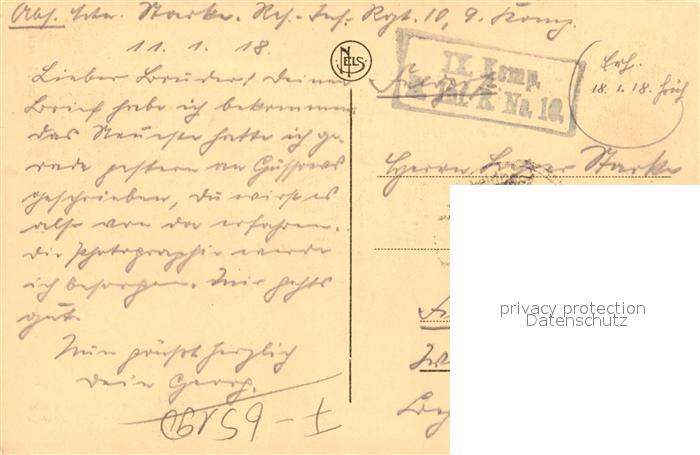 Abs. Starke. Res.-Inf.-Rgt. 10, 9. Komp.
11. 1. 18.
NELS
Lieber Bruder! Deinen
Brief habe ich bekommen
das Neueste hatte ich ge-
rade gestern an Güssows
geschrieben, du wirst es
also von da erfahren.
Die Photographie werde
ich besorgen. Mir gehts
gut.
Nun grüßt herzlich
Dein Georg.
I - 65
IX. Komp.
Inf. R. No. 10.
Erh.
18. 1. 18. früh
Herrn Starke
privacy protection
Datenschutz